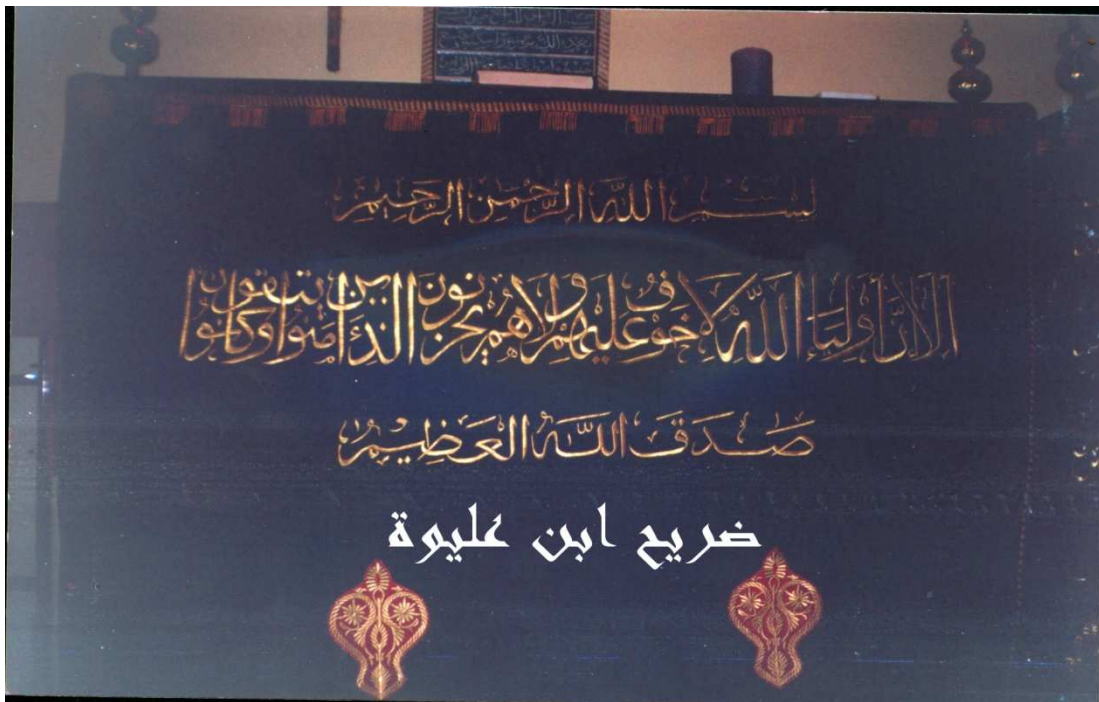 بسم الله الرحمن الرحيم
ألا إن أولياء الله لا خوف عليهم ولا هم يحزنون الذين ءامنوا وكانوا يتقون
صدق الله العظيم
ضريح ابن عليوة